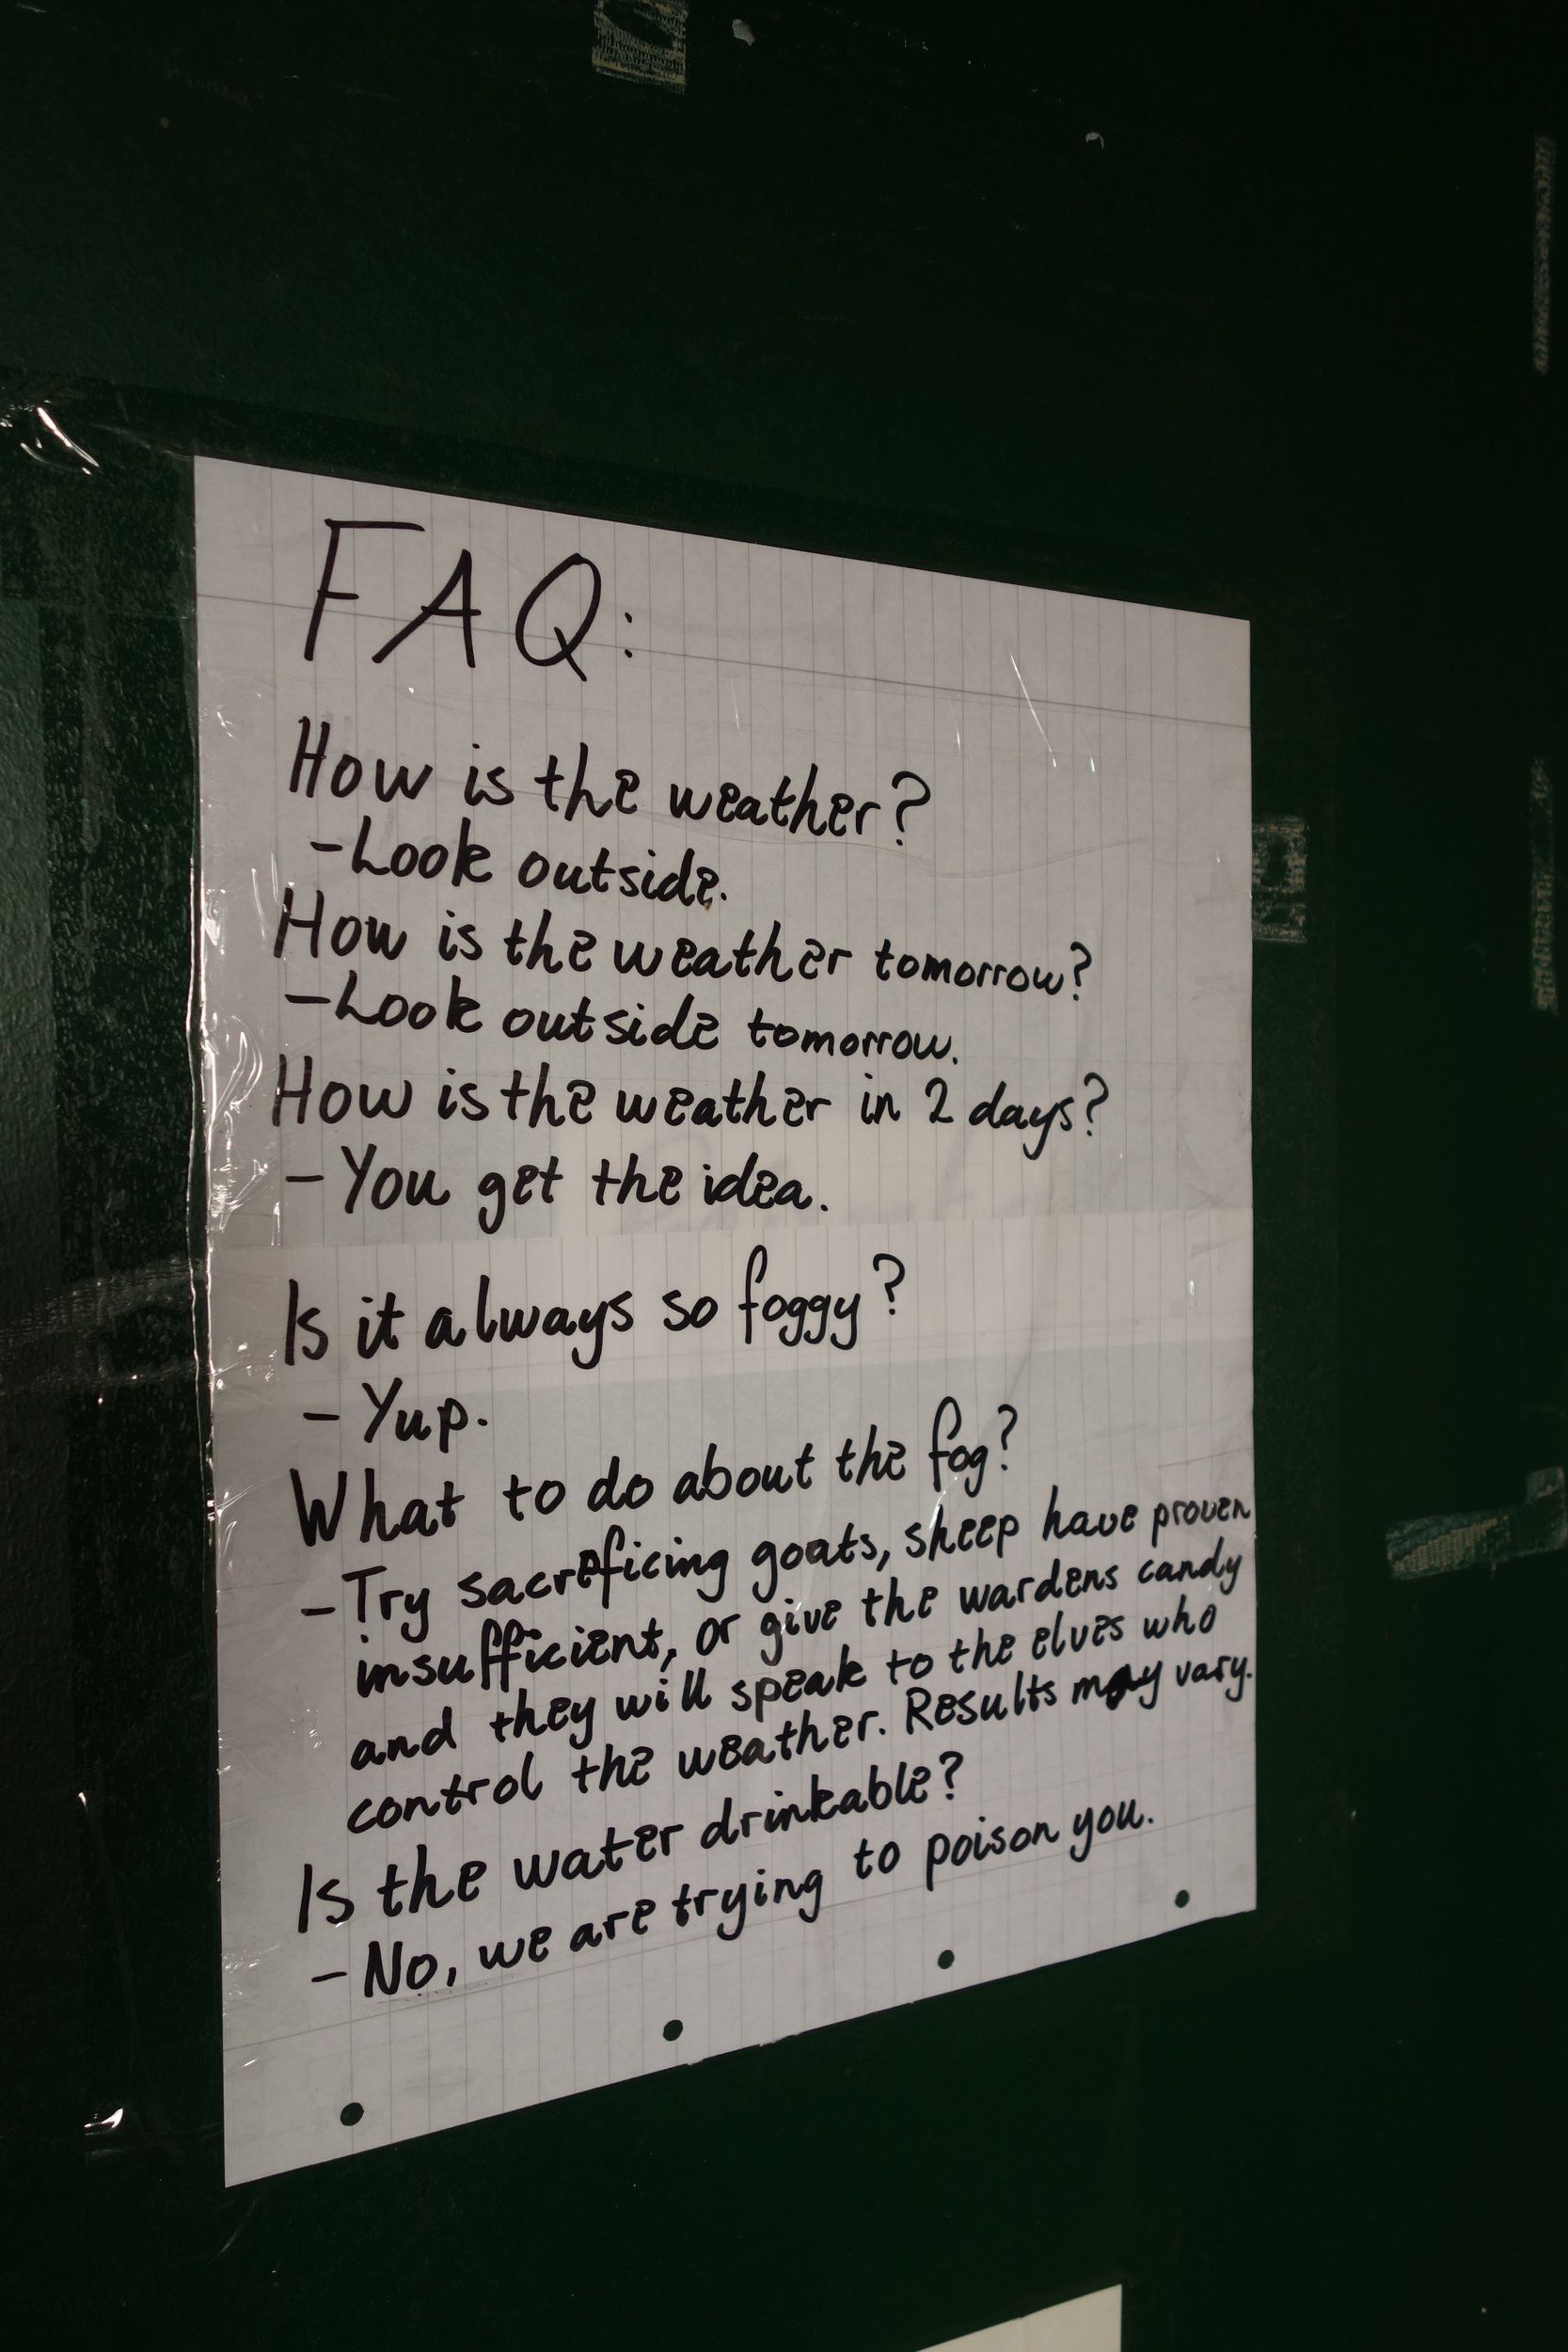 FAQ:
How is the weather?
-Look outside.
How is the weather tomorrow?
-Look outside tomorrow.
How is the weather in 2 days?
- You get the idea.
Is it always so foggy?
- Yup.
What to do about the fog?
-Try sacreficing goats, sheep have proven
insufficient, or give the wardens candy
and they will speak to the elves who
control the weather. Results may vary.
Is the water drinkable?
-No, we are trying to poison you.